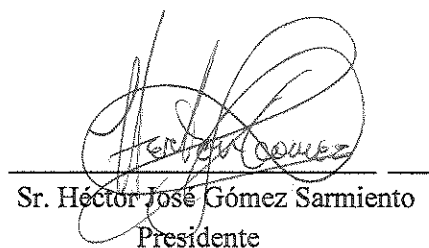 Hector Gomez
Sr. Héctor José Gómez Sarmiento
Presidente